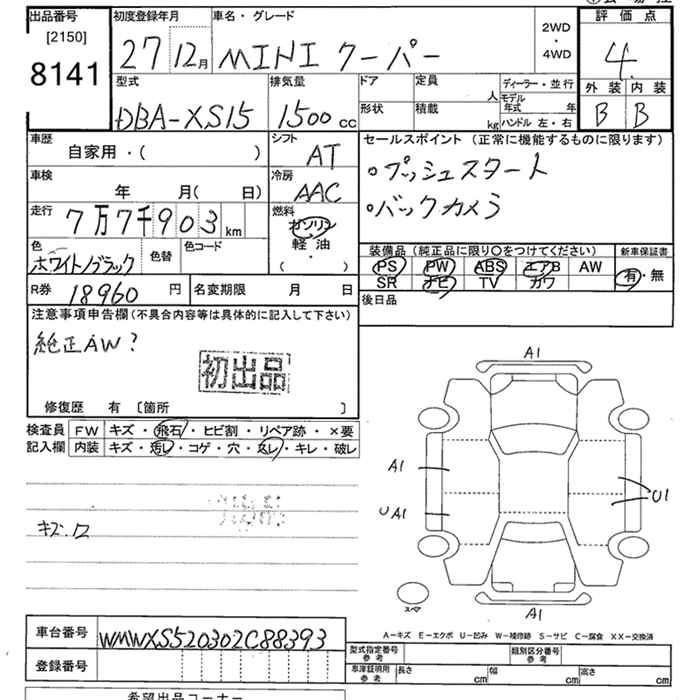 出品番号
[2150]
8141
初度登録年月
27 12月
車名・グレード
MINI クーパー
2WD
・
4WD
評価点
4
外装 内装
B B
型式
DBA-XS15
排気量
1500 cc
ドア
定員
人
形状
積載
kg
ディーラー・並行
モデル
年式 年
ハンドル 左・右
車歴
自家用・( )
シフト
AT
車検
年 月( 日)
冷房
AAC
走行
7万7千903 km
燃料
ガソリン
軽油
・
( )
色
ホワイト/ブラック
色替
色コード
R券 18960 円
名変期限 月 日
セールスポイント (正常に機能するものに限ります)
◦プッシュスタート
◦バックカメラ
装備品 (純正品に限り○をつけてください)
PS PW ABS エアB AW
SR ナビ TV カワ
新車保証書
有・無
後日品
注意事項申告欄(不具合内容等は具体的に記入して下さい)
純正AW?
初出品
修復歴 有 〔箇所 〕
検査員
記入欄
FW キズ・飛石・ヒビ割・リペア跡・×要
内装 キズ・汚レ・コゲ・穴・スレ・キレ・破レ
A1
A1
UA1
U1
A1
スペア
A-キズ E-エクボ U-凹み W-補修跡 S-サビ C-腐食 XX-交換済
車台番号 WMWXS520302C88393
登録番号
型式指定番号
参考
類別区分番号
参考
車庫証明用
参考
長さ cm
幅 cm
高さ cm
希望出品コーナー